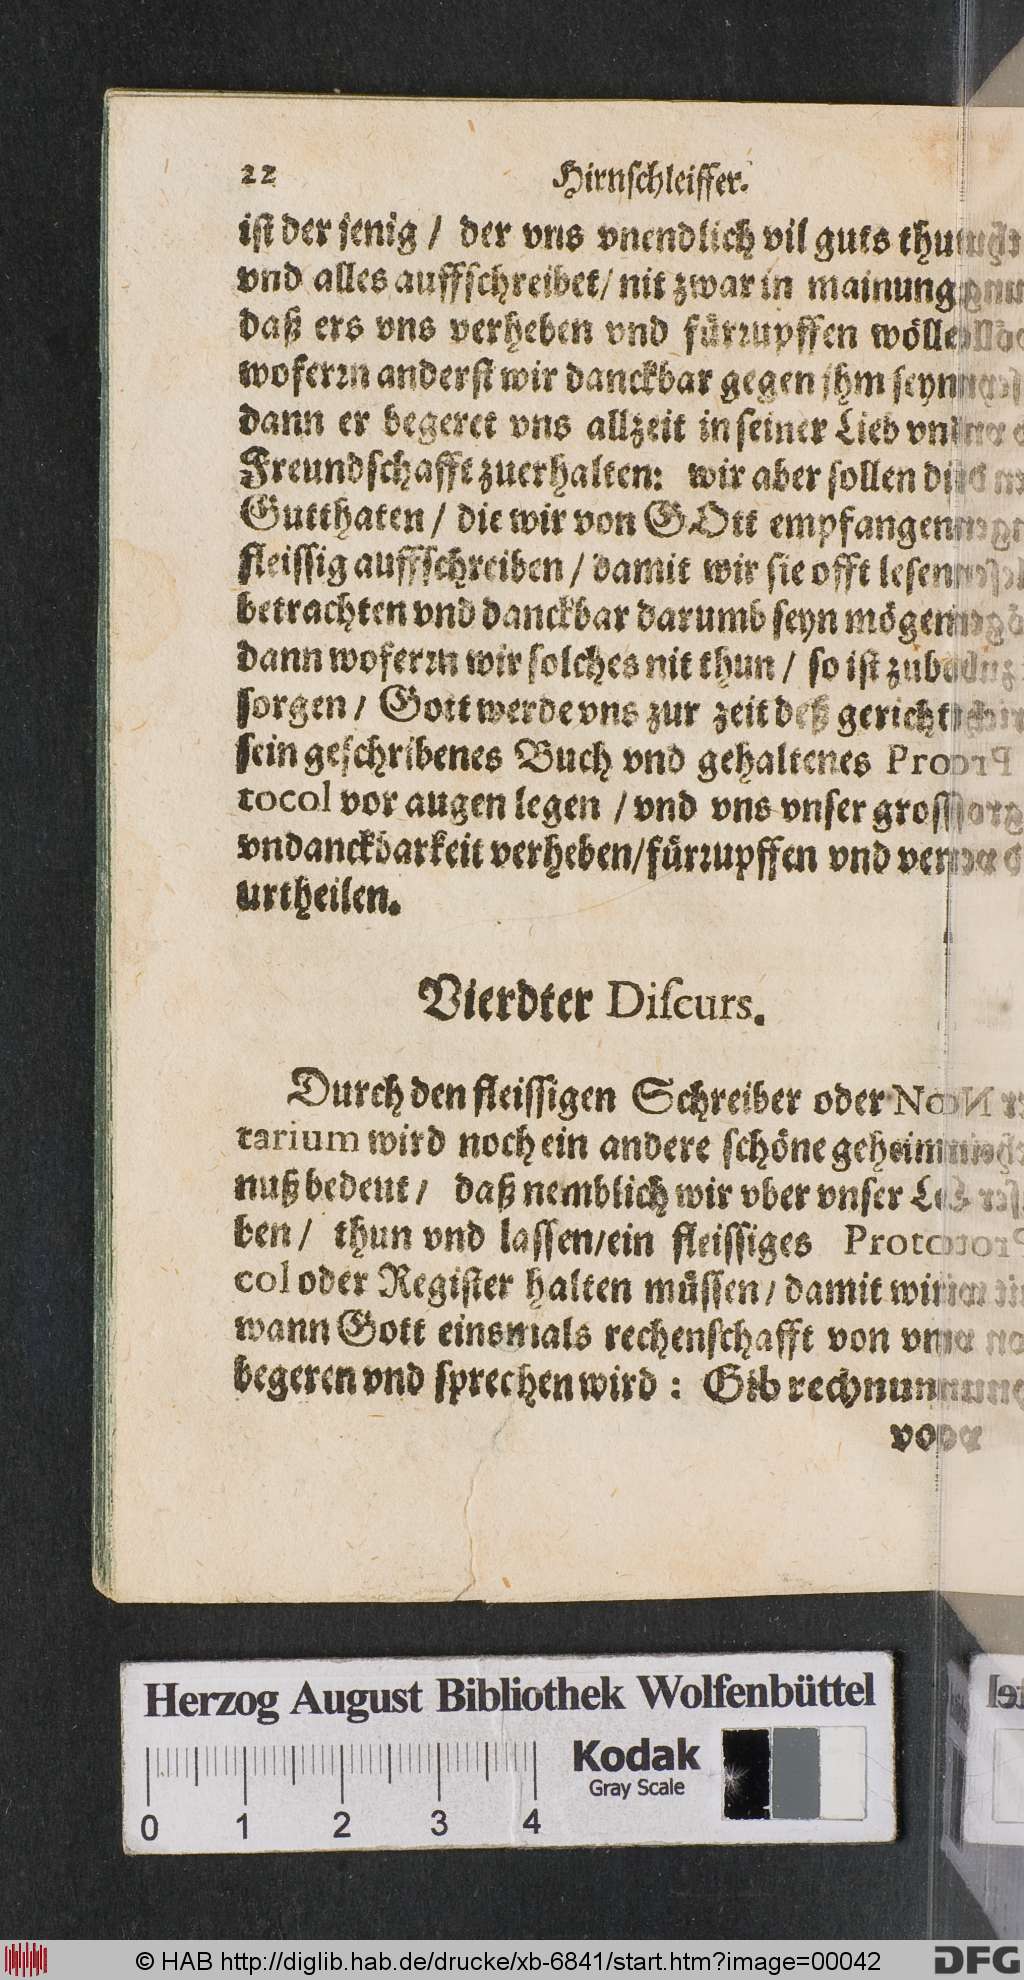 22 Hirnſchleiffer.
iſt der jenig / der vns vnendlich vil guts thut
vnd alles auffſchreibet / nit zwar in mainung
daß ers vns verheben vnd fürrupffen wölle
woferrn anderſt wir danckbar gegen jhm ſeyn
dann er begeret vns allzeit in ſeiner Lieb vnd
Freundſchafft zuerhalten: wir aber ſollen die
Gutthaten / die wir von GOtt empfangen
fleiſſig auffſchreiben / damit wir ſie offt leſen
betrachten vnd danckbar darumb ſeyn mögen
dann woferrn wir ſolches nit thun / ſo iſt zube
ſorgen / Gott werde vns zur zeit deß gerichts
ſein geſchribenes Buch vnd gehaltenes Pro
tocol vor augen legen / vnd vns vnſer groſſe
vndanckbarkeit verheben / fürrupffen vnd ver
urtheilen.
Vierdter Diſcurs.
Durch den fleiſſigen Schreiber oder No
tarium wird noch ein andere ſchöne geheim
nuß bedeut / daß nemblich wir vber vnſer Le
ben / thun vnd laſſen / ein fleiſſiges Proto
col oder Regiſter halten müſſen / damit wir
wann Gott einsmals rechenſchafft von vns
begeren vnd ſprechen wird : Gib rechnung
von
Herzog August Bibliothek Wolfenbüttel
Kodak
Gray Scale
0 1 2 3 4
© HAB http://diglib.hab.de/drucke/xb-6841/start.htm?image=00042
DFG